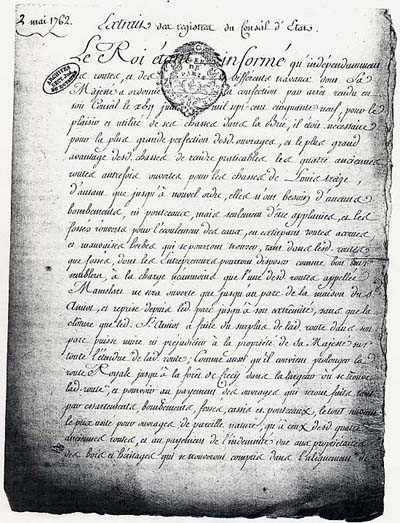 2 mai 1762.
Extrait des registres du Conseil d'Etat.
Le Roi étant informé qu'independamment
des routes, et des differents travaux dont Sa
Majesté a ordonné la confection par arrêt rendu en
son Conseil le cinquante neuf, pour le
plaisir et utilité de ses chasses dans la Brie, il étoit necessaire
pour la plus grande perfection desd. ouvrages, et le plus grand
avantage desd. chasses de rendre praticables les quatre anciennes
routes autrefois ouvertes pour les chasses de Louis treize,
d'autant que jusqu'à nouvel ordre, elles n'ont besoin d'aucuns
bombements, ni ponceaux, mais seulement d'être applanies, et les
fossés ouverts pour l'écoulement des eaux, en extirpant routes
et mauvaises herbes qui se pourront trouver, tant dans lesd. routes
que fossés, dont les entrepreneurs pourront disposer comme bon leur
semblera, à la charge néanmoins que l'une desd. routes appellée
Mamelare ne sera ouverte que jusqu'au parc de la maison du S.
Amiot, et reprise depuis led. parc jusqu'à son extremité, sans que la
cloture que led. S. Amiot a faite du surplus de lad. route dans son
parc puisse nuire ni prejudicier à la propriété de Sa Majesté sur
toute l'étendue de lad. route; Comme aussi qu'il convient prolonger la
route Royale jusqu'à la forêt de Crecy dans la largeur où se trouve
lad. route, et pourvoir au payement des ouvrages qui seront faits tant
par essartements, bombements, fossés, cassis et ponceaux, letout suivant
le prix fixé pour ouvrages de pareille nature, qu'à ceux desd. quatre
anciennes routes, et au payement de l'indemnité due aux proprietaires
des bois et héritages qui se trouveront compris dans l'alignement de